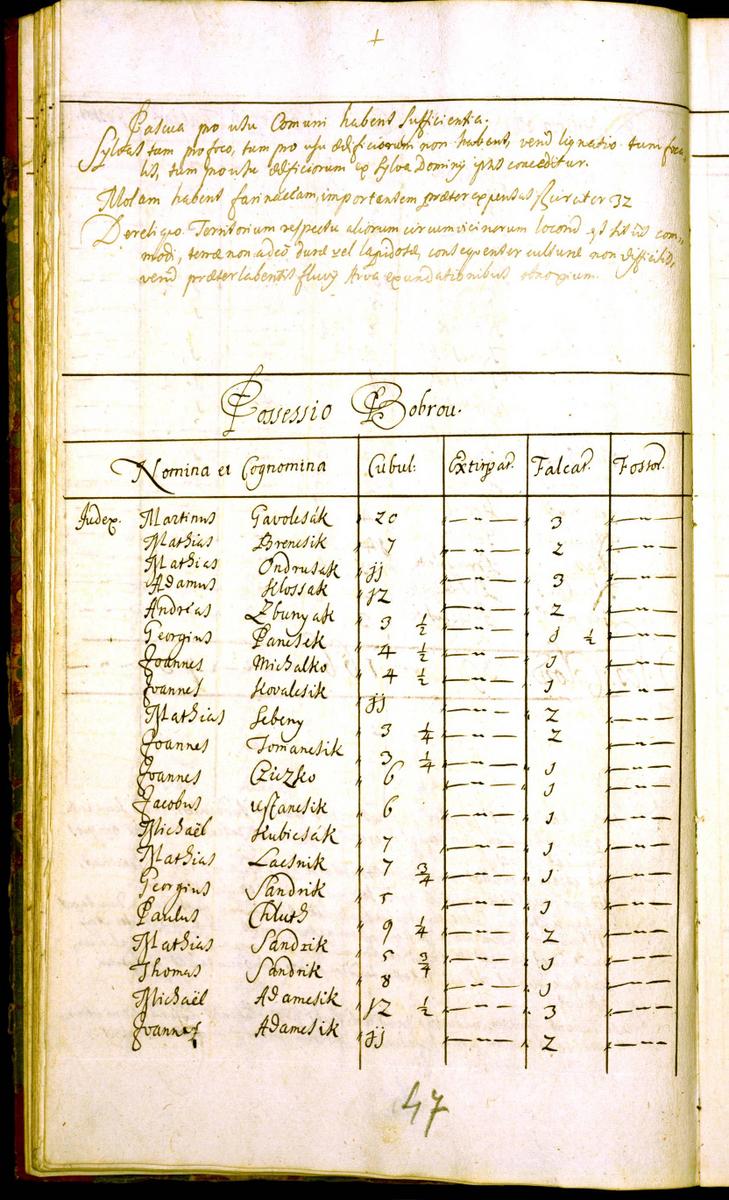 +
Pascua pro usu Comuni habent sufficientia.
Sylvas tam pro foco, tum pro usu ædificiorum non habent, verum lignatio tum foca„
lis, tum pro usu ædificiorum ex Sylva Dominj conceditur.
Molam habent farinaceam, importantem præter expensas 32
De reliquo Territorium respectu aliorum circumvicinorum com„
modi, terræ non adeo duræ vel lapidosæ, consequenter culturæ non difficilis,
verum præterlabentis fluvij Arva exundationibus obnoxium.
Possessio Bobrou.
Nomina et Cognomina Cubul: Extirpat. Falcat. Fossor.
Judex. Martinus Gavolcsák 20 — „ — 3 — „ —
Mathias Brencsik 7 — „ — 2 — „ —
Mathias Ondrusak jj — „ — 3 — „ —
Adamus Klossak j2 — „ — 2 — „ —
Andreas Zbunyak 3 ½ — „ — j ½ — „ —
Georgius Pancsek 4 ½ — „ — j — „ —
Joannes Michalko 4 ½ — „ — j — „ —
Joannes Kovalcsik jj — „ — 2 — „ —
Mathias Sebeny 3 ¼ — „ — 2 — „ —
Joannes Tomancsik 3 ¼ — „ — j — „ —
Joannes Cziczko 6 — „ — j — „ —
Jacobus 6 — „ — j — „ —
Michaël Kubicsák 7 — „ — j — „ —
Mathias Lacsnik 7 ¾ — „ — j — „ —
Georgius Sandrik 5 — „ — j — „ —
Paulus Chluth 9 ¼ — „ — 2 — „ —
Mathias Sandrik 5 ¾ — „ — j — „ —
Thomas Sandrik 8 — „ — j — „ —
Michaël Adamcsik j2 ½ — „ — 3 — „ —
Joannes Adamcsik jj — „ — 2 — „ —
47